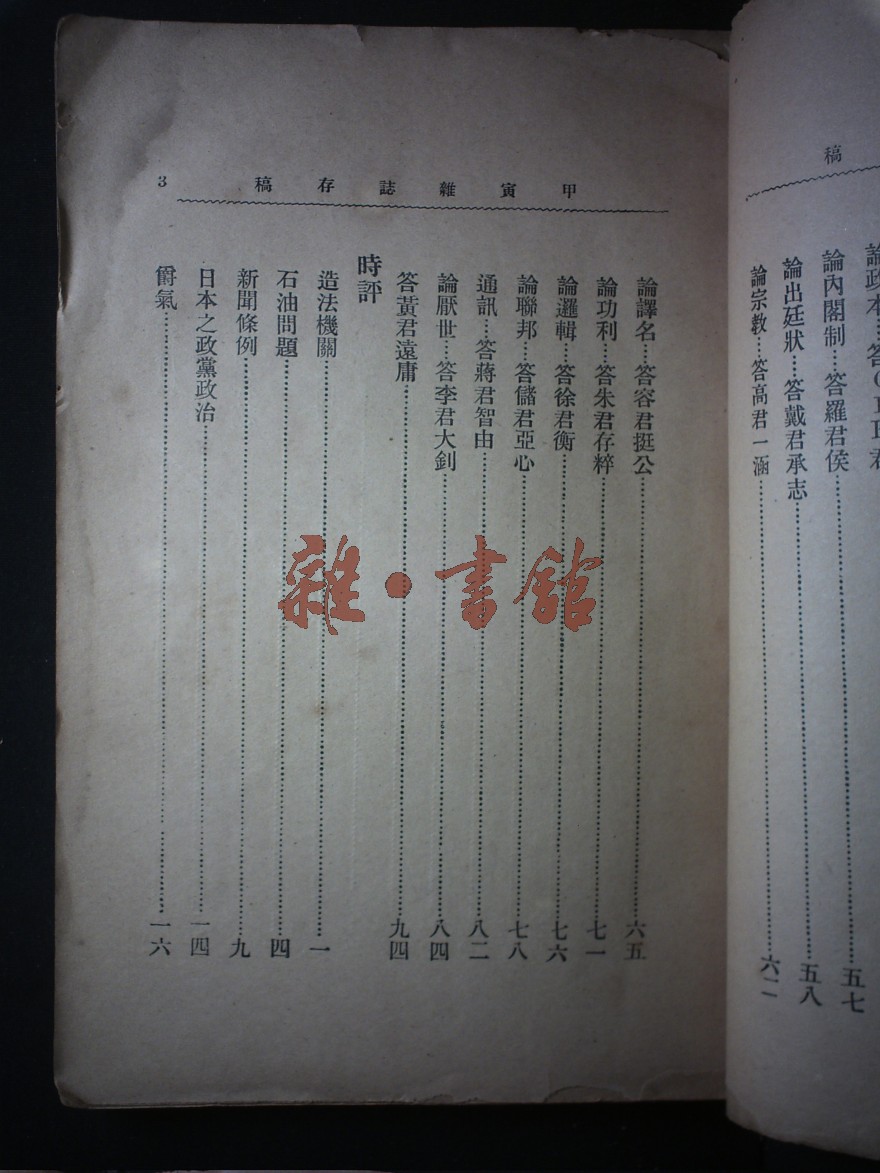 稿
論內閣制…答羅君侯……五七
論出廷狀…答戴君承志……五八
論宗教…答高君一涵……六二
甲寅雜誌存稿 3
論譯名…答容君挺公……六五
論功利…答朱君存粹……七一
論邏輯…答徐君衡……七六
論聯邦…答儲君亞心……七八
通訊…答蔣君智由……八二
論厭世…答李君大釗……八四
答黃君遠庸……九四
時評
造法機關……一
石油問題……四
新聞條例……九
日本之政黨政治……一四
爵氣……一六
雜·書館